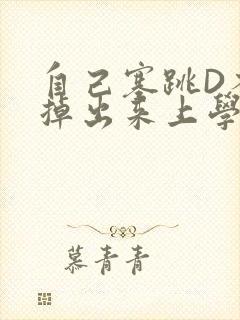 自己塞跳D不
掉出来上學
慕青青